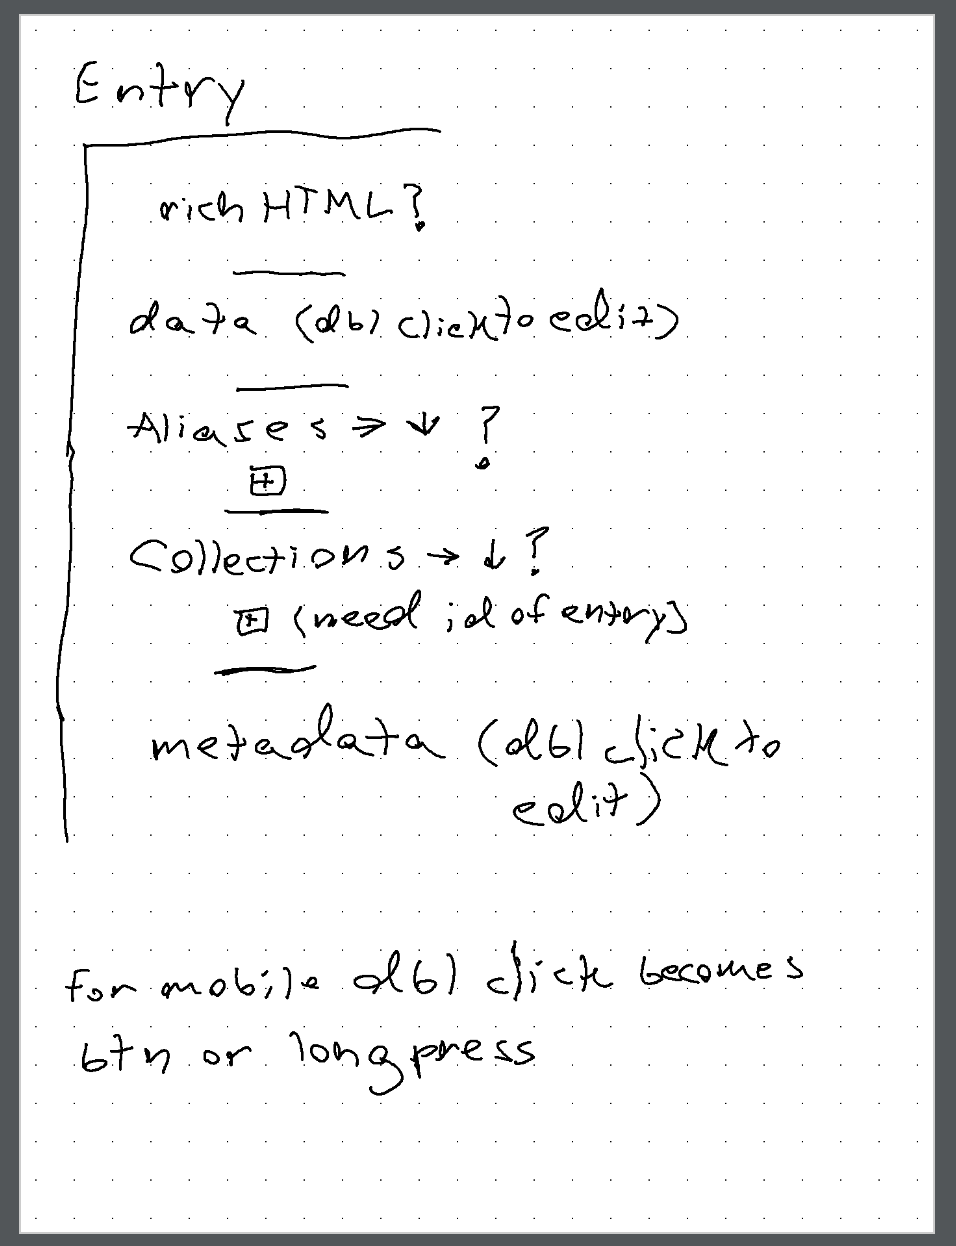 Entry
rich HTML?
data (dbl click to edit)
Aliases → ↓ ?
+
Collections → ↓ ?
+ (need id of entry)
metadata (dbl click to
edit)
for mobile dbl click becomes
btn or long press